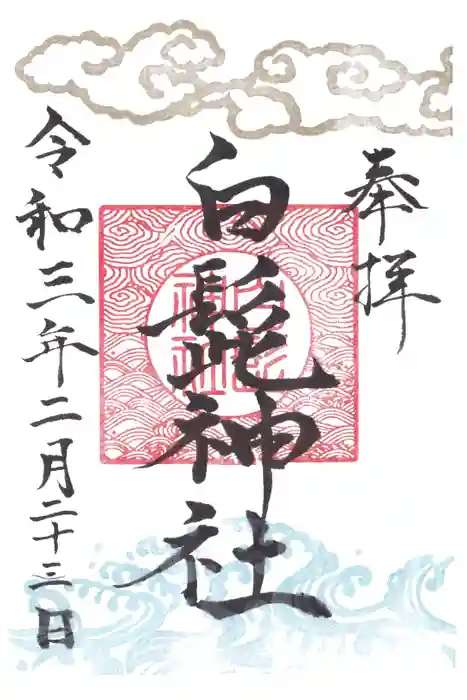 奉拝
白髭神社
令和三年二月二十三日